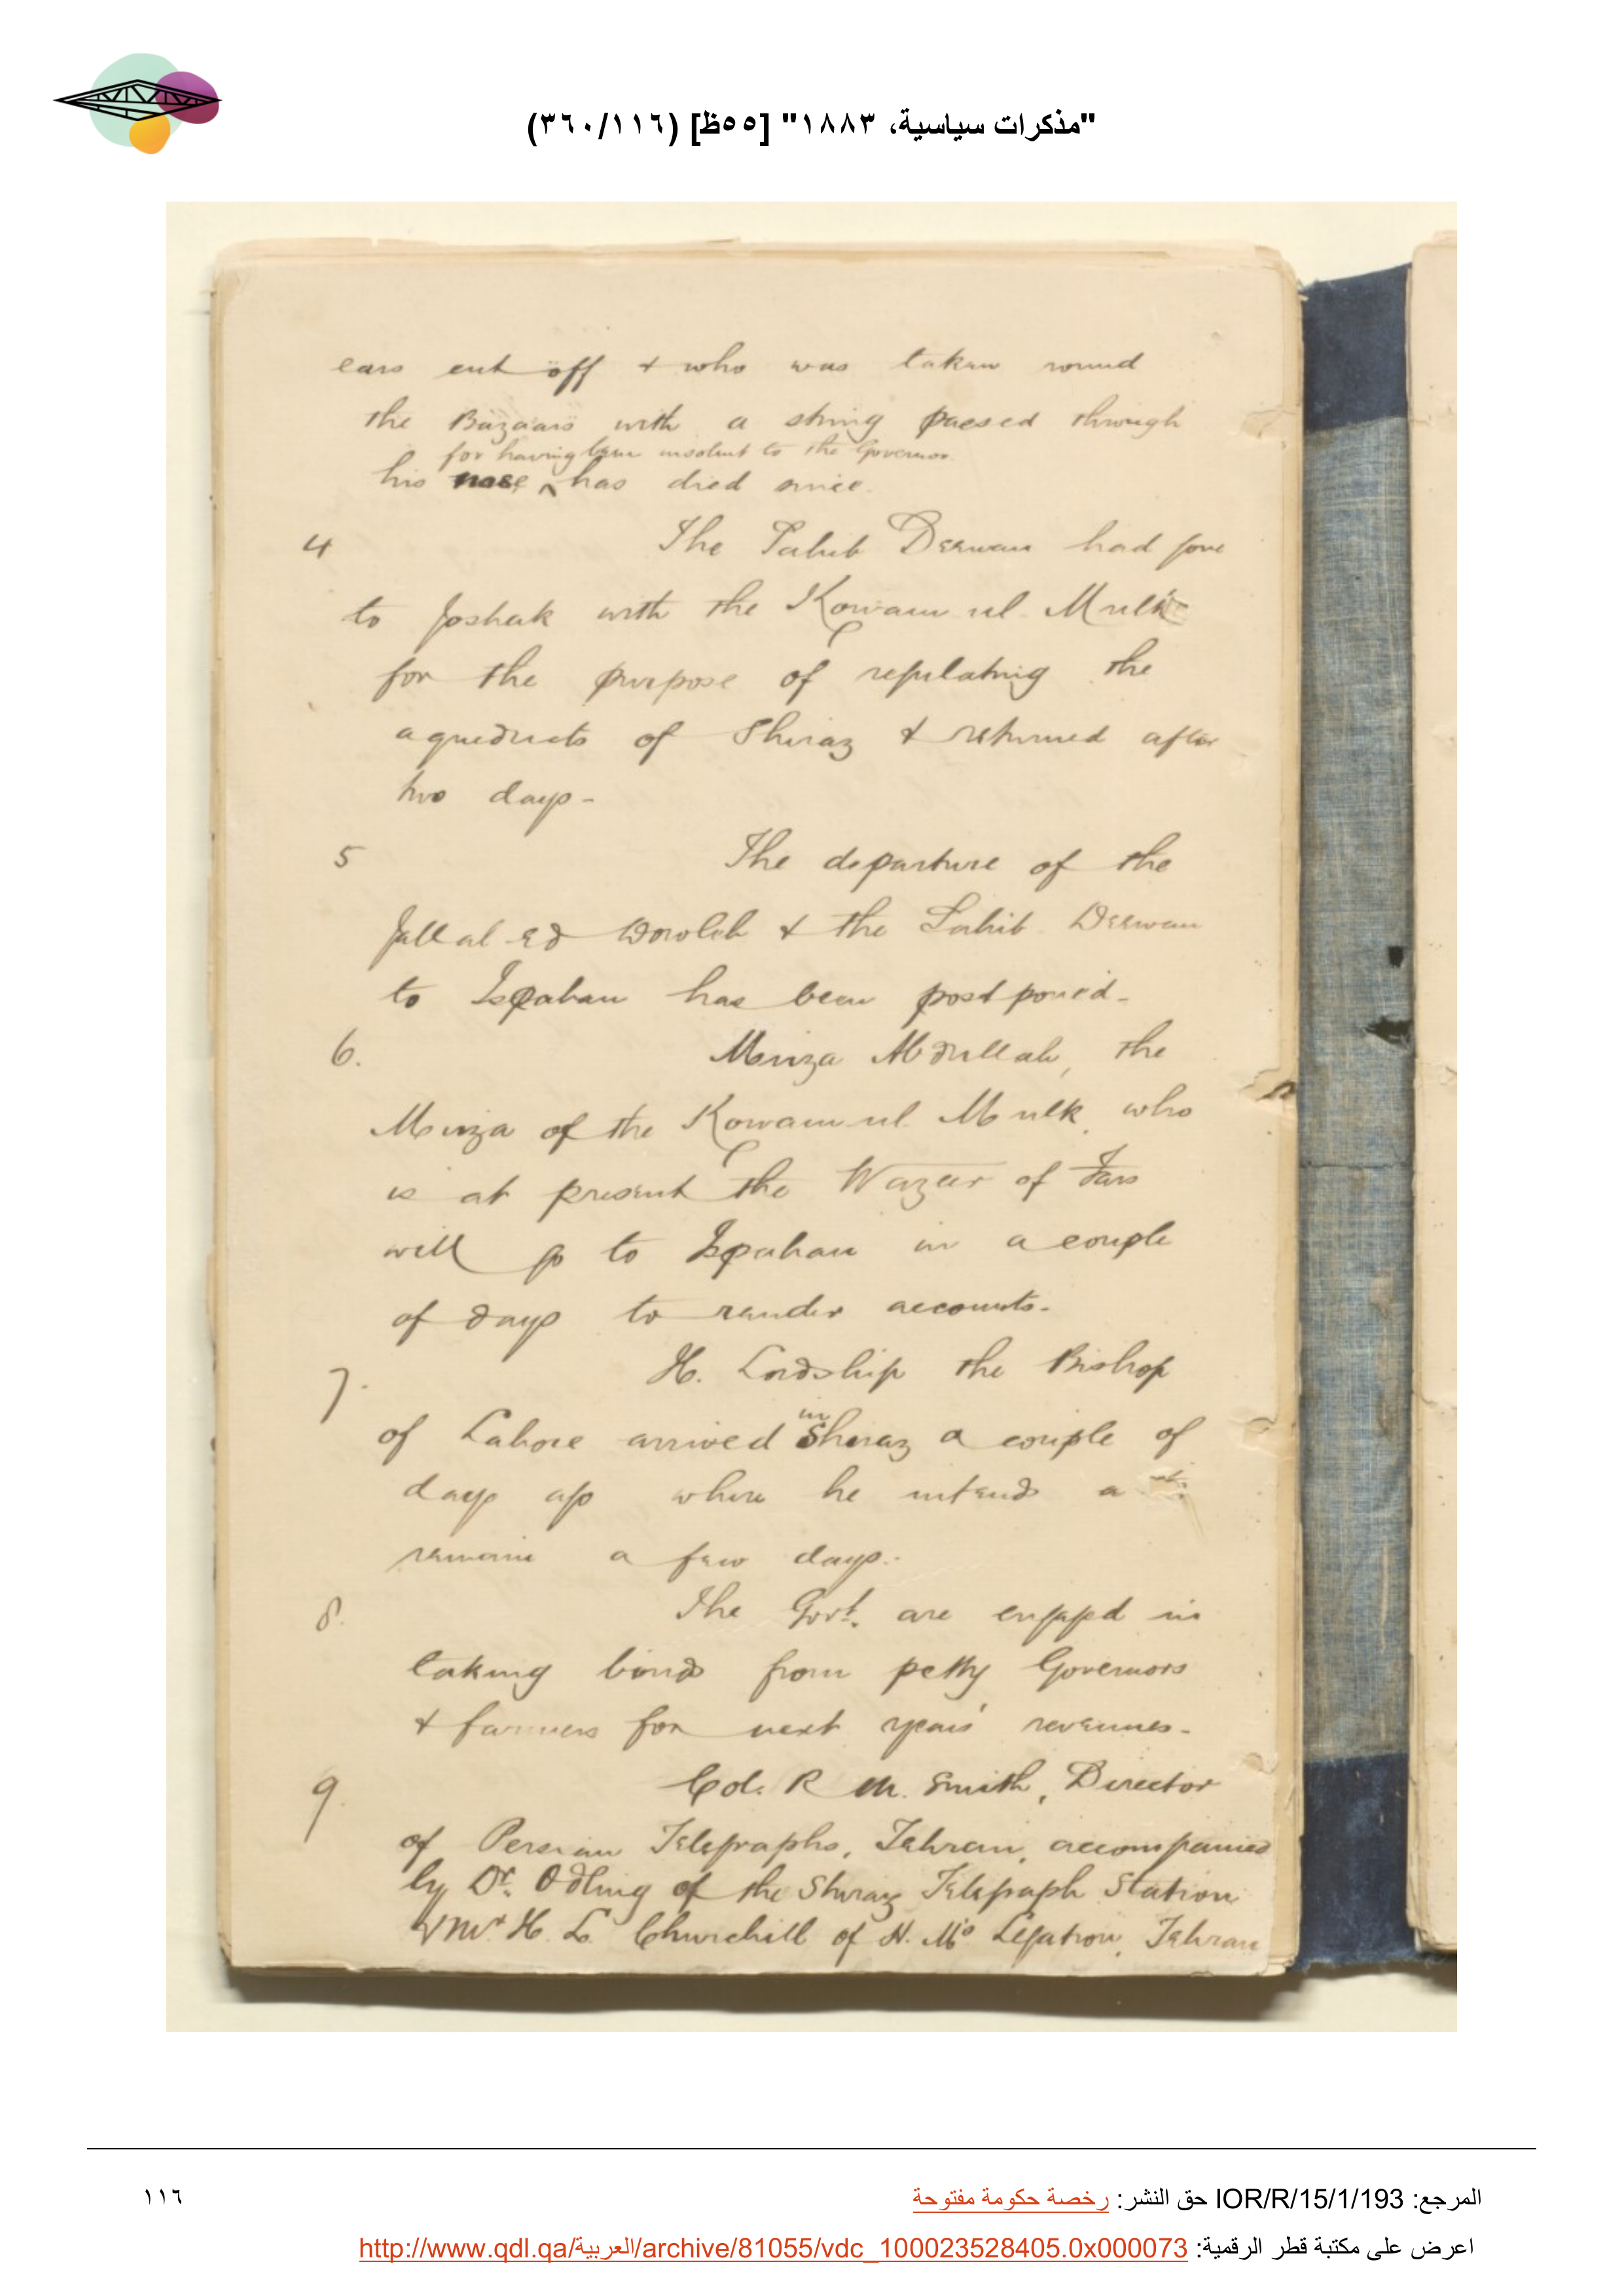 "مذكرات سياسية، ١٨٨٣" [٥٥ظ] (٣٦٠/١١٦)
ears cut off & who was taken round
the Bazaars with a string passed through
for having been insolent to the Governor.
his nose ^ has died since.
4 The Sahib Deewan had gone
to Joshak with the Kowam ul Mulk
for the purpose of regulating the
aqueducts of Shiraz & returned after
two days -
5 The departure of the
Jallal ed Dowleh & the Sahib Deewan
to Ispahan has been postponed -
6. Mirza Abdullah, the
Mirza of the Kowam ul Mulk, who
is at present the Wazeer of Fars
will go to Ispahan in a couple
of days to render accounts -
7. H. Lordship the Bishop
of Lahore arrived in Shiraz a couple of
days ago where he intends
remain a few days. -
8. The Govt. are engaged in
taking bonds from petty Governors
& farmers for next years' revenues -
9. Col. R M. Smith, Director
of Persian Telegraphs, Tehran, accompanied
by Dr. Odling of the Shiraz Telegraph Station
& Mr H. L. Churchill of H. M's Legation, Tehran
المرجع: IOR/R/15/1/193 حق النشر: رخصة حكومة مفتوحة
١١٦
اعرض على مكتبة قطر الرقمية: http://www.qdl.qa/العربية/archive/81055/vdc_100023528405.0x000073